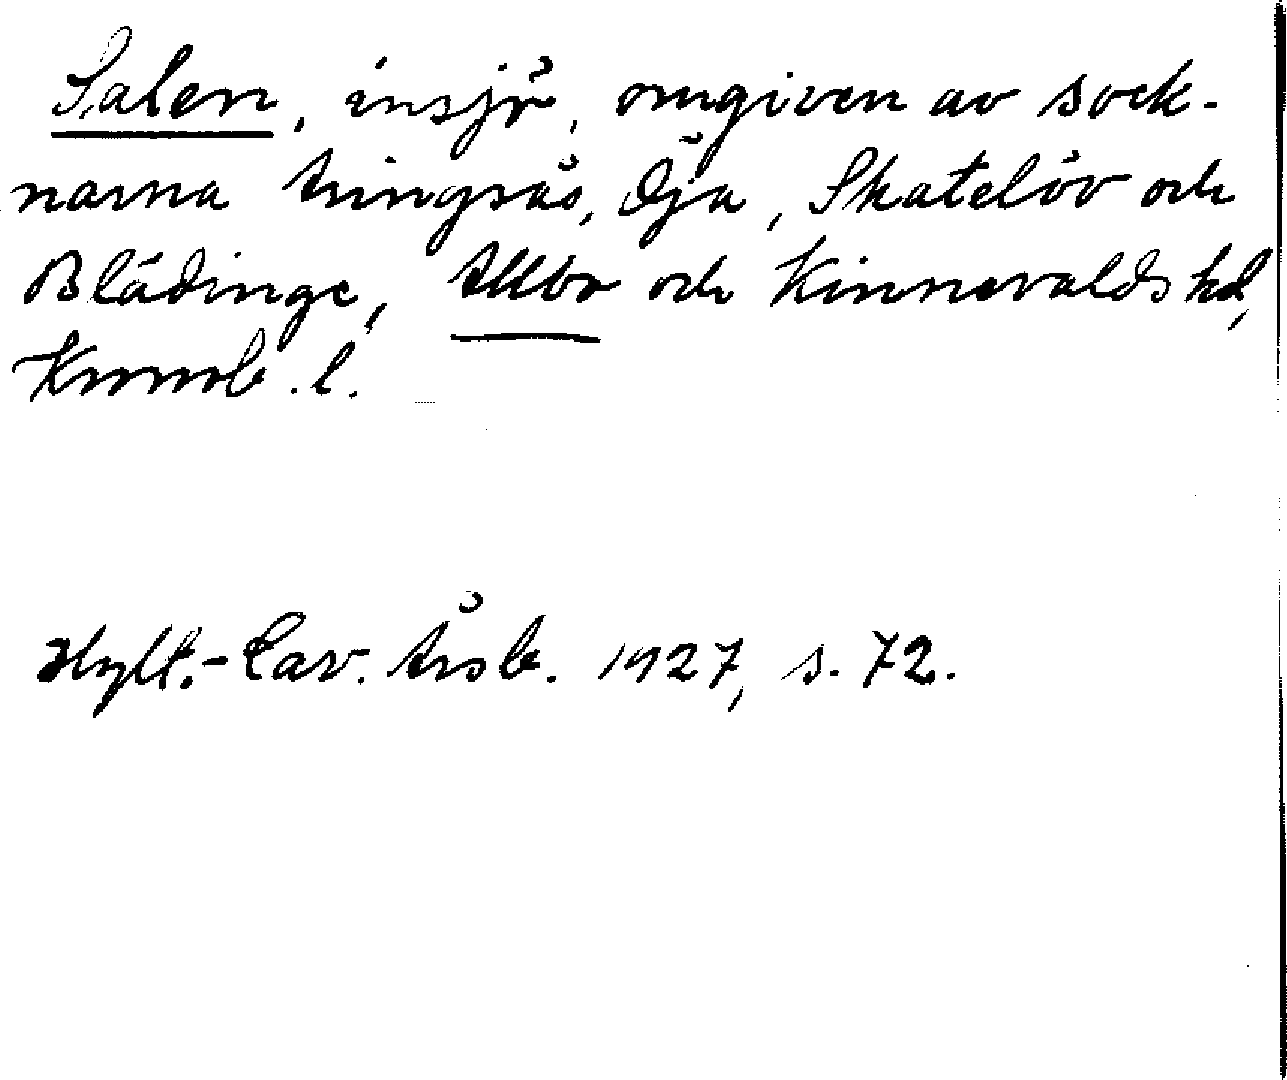 Salen, insjö, omgiven av sock-
narna Aringsås, Öja, Skatelöv och
Blädinge, Allbo och Kinnevalds hd,
Kronob. l.
Hylt.-Cav. Årsb. 1927, s. 72.